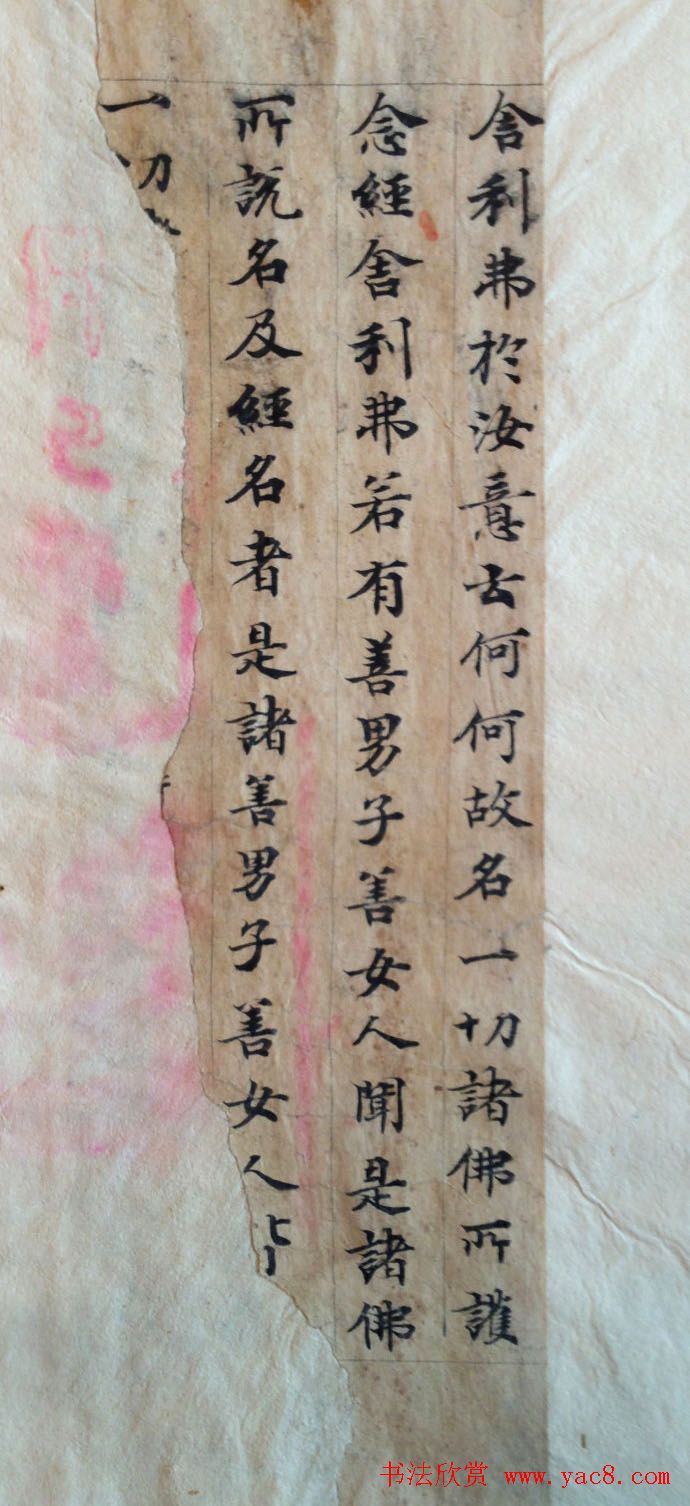 舍利弗於汝意云何何故名一切諸佛所護
念經舍利弗若有善男子善女人聞是諸佛
所說名及經名者是諸善男子善女人皆
一切
书法欣赏 www.yac8.com